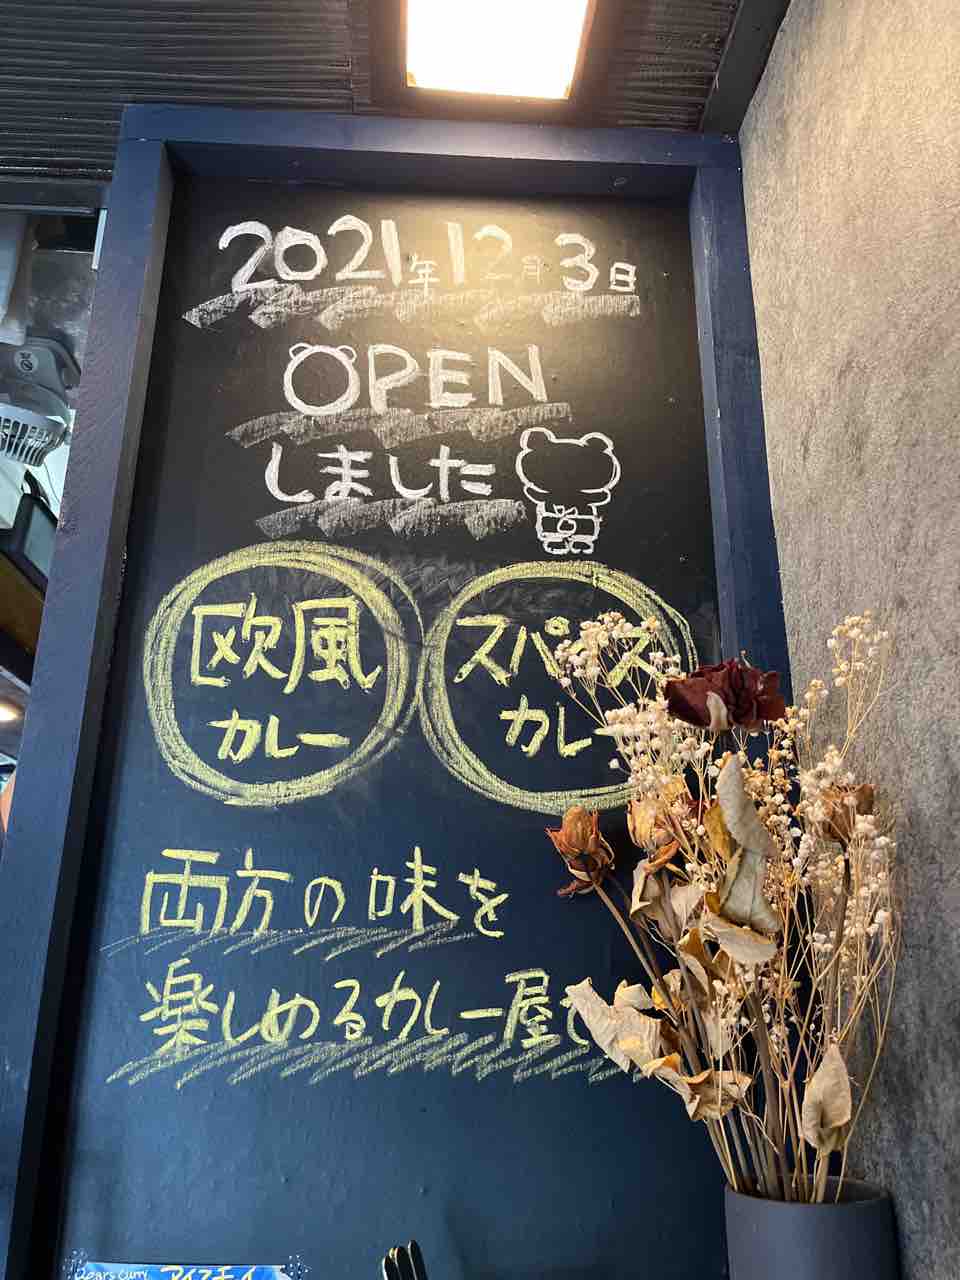 2021年12月3日
OPEN
しました
欧風
カレー
スパイス
カレー
両方の味を
楽しめるカレー屋
Bears curry アイスモナ